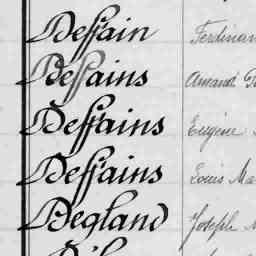 Deffain Ferdinan
Deffains Amand
Deffains Eugène
Deffains Louis Ma
Degland Joseph M